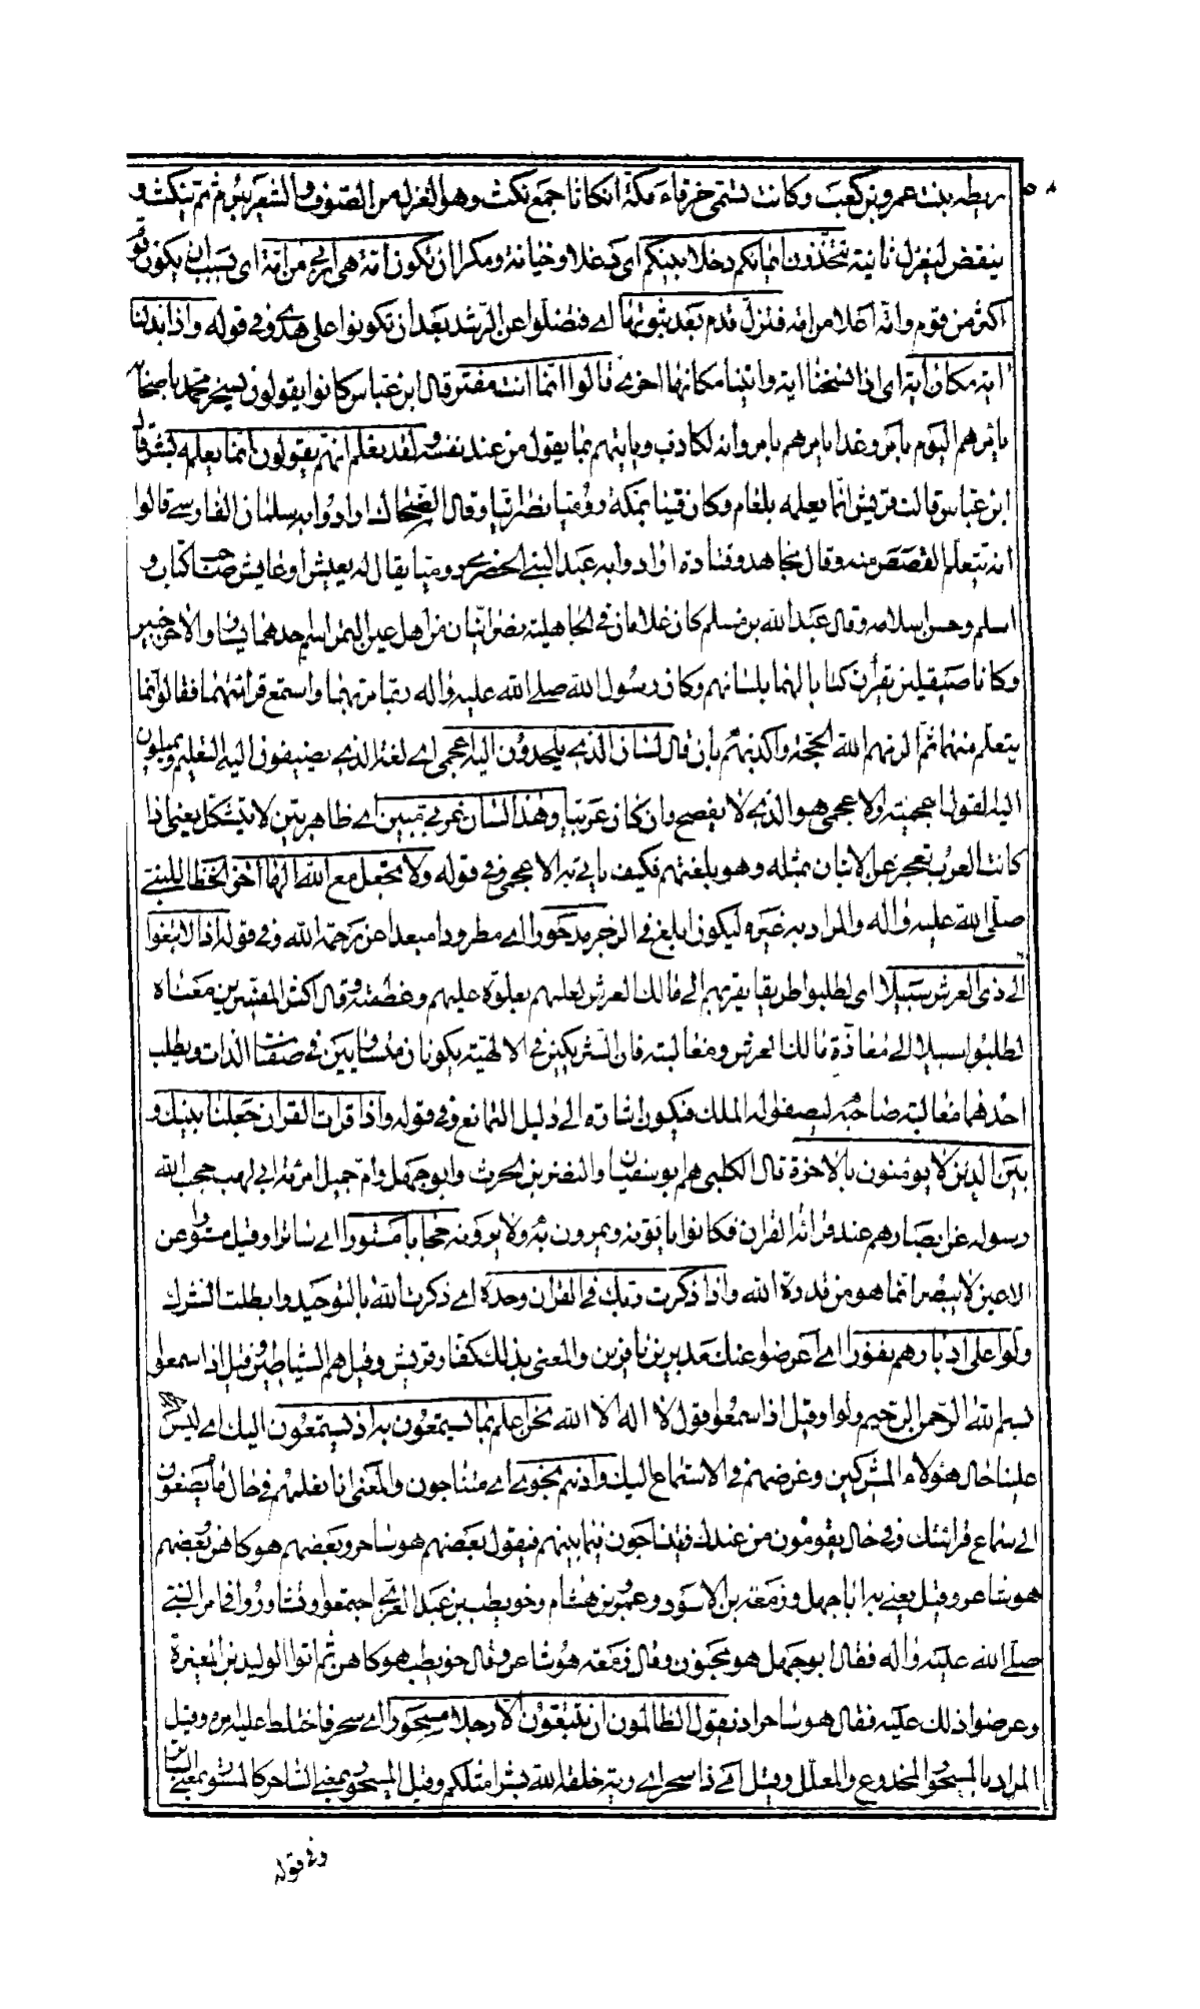 ريطه بنت عمرو بن كعب وكانت تسمى خرقاء مكة انكاثا جمع نكث وهو الغزل من الصوف والشعر يبرم ثم ينكث و
ينقض ليغزل ثانية تتخذون ايمانكم دخلا بينكم اى دغلا وخيانة ومكرا ان تكون امة هى اربى من امة اى بسبب ان يكون قوم
اكثر من قوم وامة اعلا من امة فتزل قدم بعد ثبوتها اے فتضلوا عن الرشد بعد ان تكونوا على هدى وفى قوله واذا بدلنا
اية مكان اية اى اذا نسخنا اية واتينا مكانها اخرى قالوا انما انت مفتر قال ابن عباس كانوا يقولون يسخر محمد باصحابه
يامرهم اليوم بامر وغدا يامرهم بامر وانه لكاذب وياتيهم بما يقول من عند نفسه ولقد نعلم انهم يقولون انما يعلمه بشر قال
ابن عباس قالت قريش انما يعلمه بلعام وكان قينا بمكة روميا نصرانيا وقال الضحاك ارادوا به سلمان الفارسے قالوا
انه يتعلم القصص منه وقال مجاهد وقتادة ارادوا به عبد البنى الحضرمى روميا يقال له يعيش او عايش صاحب كتاب و
اسلم وحسن اسلامه وقال عبد الله بن مسلم كان غلامان فى الجاهلية نصرانيان من اهل عين التمر اسم احدهما يسار والاخر خير
وكانا صيقلين يقرأن كتابا لهما بلسانهم وكان رسول الله صلے الله عليه واله ربما مر بهما واستمع قرائتهما فقالوا انما
يتعلم منهما ثم الزمهم الله الحجة واكذبهم بان قال لسان الذى يلحدون اليه اعجمى اے لغة الذى يضيفون اليه التعليم ويميلون
اليه القول اعجمية والاعجمى هو الذى لا يفصح وان كان عربيا وهذا لسان عربى مبين اے ظاهر بين لا يتشكل يعنى اذا
كانت العرب تعجز عن الاتيان بمثله وهو بلغتهم فكيف ياتى به الاعجمى وفى قوله ولا تجعل مع الله الها اخر الخطاب للنبے
صلى الله عليه واله والمراد به غيره ليكون ابلغ فى الزجر مدحورا اے مطرودا مبعدا عن رحمة الله وفى قوله اذا لابتغوا
الے ذى العرش سبيلا اى لطلبوا طريقا يقربهم الى مالك العرش لعلمهم بعلوه عليهم وعظمته وقال اكثر المفسرين معناه
لطلبوا سبيلا الے معازة مالك العرش ومغالبته فان الشريكين فى الالهية يكونان متساويين فى صفات الذات ويطلب
احدهما مغالبة صاحبه ليصفو له الملك فيكون اشارة الے دليل التمانع وفى قوله واذا قرات القران جعلنا بينك و
بين الذين لا يومنون بالاخرة قال الكلبى هم ابو سفيان والنضر بن الحرث وابو جهل وام جميل امرئة ابى لهب حجب الله
رسوله عن ابصارهم عند قرائة القران فكانوا ياتونه ويمرون به ولا يرونه حجابا مستورا اے ساترا وقيل مستورا عن
الاعين لا يبصر انما هو من قدرة الله واذا ذكرت ربك فى القران وحده اے ذكرت الله بالتوحيد وابطلت الشرك
ولوا على ادبارهم نفورا اے اعرضوا عنك مدبرين نافرين والمعنى بذلك كفار قريش وقيل هم الشياطين وقيل اذا سمعوا
بسم الله الرحمن الرحيم ولوا وقيل اذا سمعوا قول لا اله الا الله نحن اعلم بما يستمعون به اذ يستمعون اليك اے ليس يخفى
علينا حال هؤلاء المشركين وغرضهم فى الاستماع اليك واذ هم نجوى اے متناجون والمعنى انا نعلمهم فى حال ما يصغون
الے سماع قرائتك وفى حال يقومون من عندك فيتناجون فيما بينهم فيقول بعضهم هو ساحر وبعضهم هو كاهن وبعضهم
هو شاعر وقيل يعنے به ابا جهل وزمعة بن الاسود وعمرو بن هشام وخويطب بن عبد العزى اجتمعوا وتشاوروا فى امر النبے
صلے الله عليه واله فقال ابو جهل هو مجنون وقال زمعه هو شاعر وقال خويطب هو كاهن ثم اتوا الوليد بن المغيرة
وعرضوا ذلك عليه فقال هو ساحر اذ يقول الظالمون ان تتبعون الا رجلا مسحورا اے سحر فاختلط عليه امره وقيل
المراد بالمسحور المخدوع والمعلل وقيل اے ذا سحر اے رية خلقه الله بشرا مثلكم وقيل المسحور بمعنى الساحر كالمستور بمعنى الساتر
وفى قوله